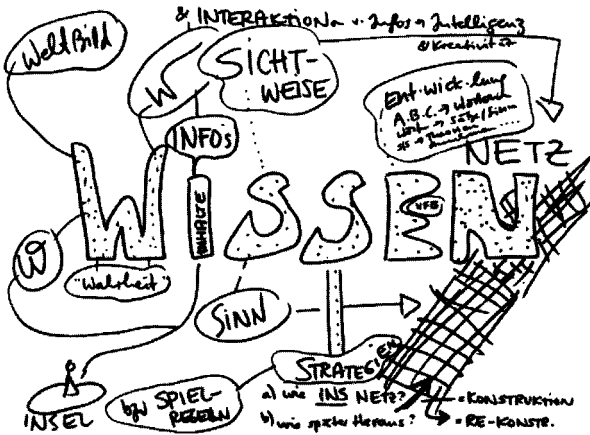 & INTERAKTION v. Infos → Intelligenz
& Kreativität
WeltBild
W
SICHT-
WEISE
INFO's
Ent·wick·lung
A.B.C. →
NETZ
WISSEN
INHALTE
W
"Wahrheit"
SINN
STRATEGIEN
INSEL
bzw SPIEL-
REGELN
a) wie INS NETZ?
= KONSTRUKTION
b) wie später Heraus?
= RE-KONSTR.